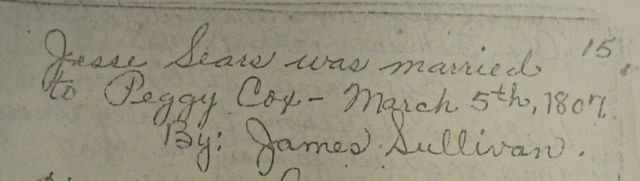 Jesse Sears was married 15
to Peggy Cox - March 5th, 1807.
By: James Sullivan.